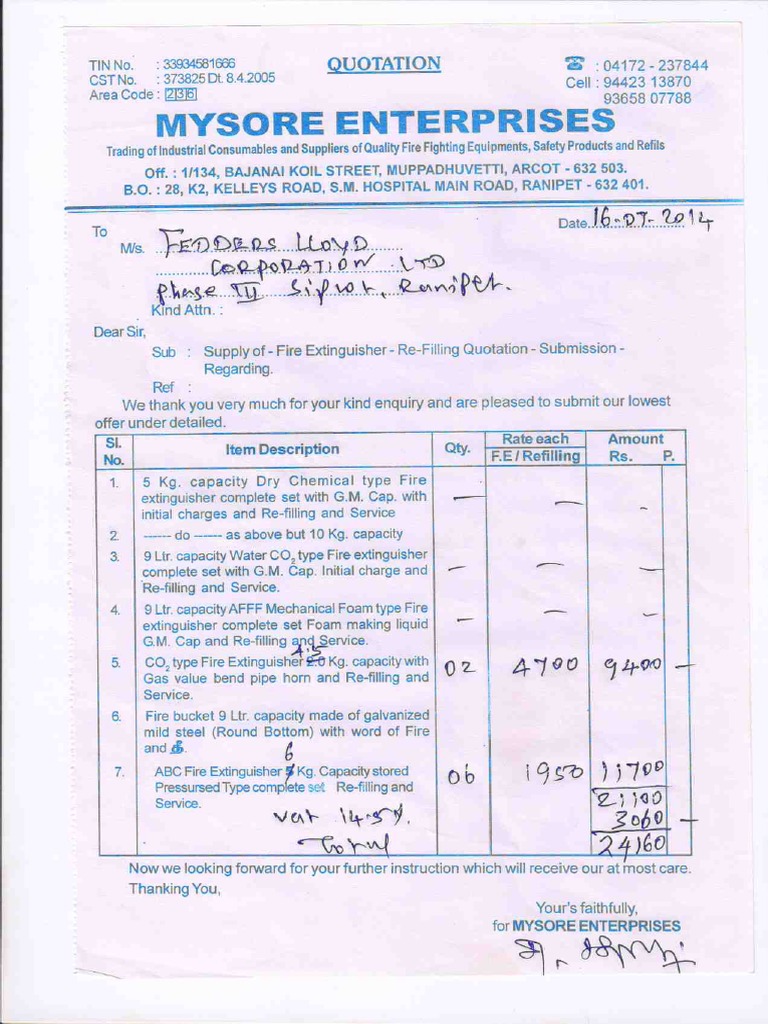 TIN No. : 33934581666
CST No. : 373825 Dt. 8.4.2005
Area Code : 236
QUOTATION
☎ : 04172 - 237844
Cell : 94423 13870
93658 07788
MYSORE ENTERPRISES
Trading of Industrial Consumables and Suppliers of Quality Fire Fighting Equipments, Safety Products and Refils
Off. : 1/134, BAJANAI KOIL STREET, MUPPADHUVETTI, ARCOT - 632 503.
B.O. : 28, K2, KELLEYS ROAD, S.M. HOSPITAL MAIN ROAD, RANIPET - 632 401.
Date 16-07-2014
To
M/s. FEDDERS LLOYD
CORPORATION LTD
Phase III Sipcot, Ranipet.
Kind Attn. :
Dear Sir,
Sub : Supply of - Fire Extinguisher - Re-Filling Quotation - Submission -
Regarding.
Ref :
We thank you very much for your kind enquiry and are pleased to submit our lowest
offer under detailed.
Sl. No. Item Description Qty. Rate each F.E / Refilling Amount Rs. P.
1. 5 Kg. capacity Dry Chemical type Fire
extinguisher complete set with G.M. Cap. with
initial charges and Re-filling and Service — — -
2. ------ do ------ as above but 10 Kg. capacity
3. 9 Ltr. capacity Water CO2 type Fire extinguisher
complete set with G.M. Cap. Initial charge and — — —
Re-filling and Service.
4. 9 Ltr. capacity AFFF Mechanical Foam type Fire
extinguisher complete set Foam making liquid — — —
G.M. Cap and Re-filling and Service.
5. CO2 type Fire Extinguisher 4.5 Kg. capacity with 02 4700 9400 —
Gas value bend pipe horn and Re-filling and
Service.
6. Fire bucket 9 Ltr. capacity made of galvanized
mild steel (Round Bottom) with word of Fire
and
7. ABC Fire Extinguisher 6 Kg. Capacity stored 06 1950 11700
Pressursed Type complete set Re-filling and
Service.
21100
Vat 14.5%. 3060 —
Total 24160
Now we looking forward for your further instruction which will receive our at most care.
Thanking You,
Your's faithfully,
for MYSORE ENTERPRISES